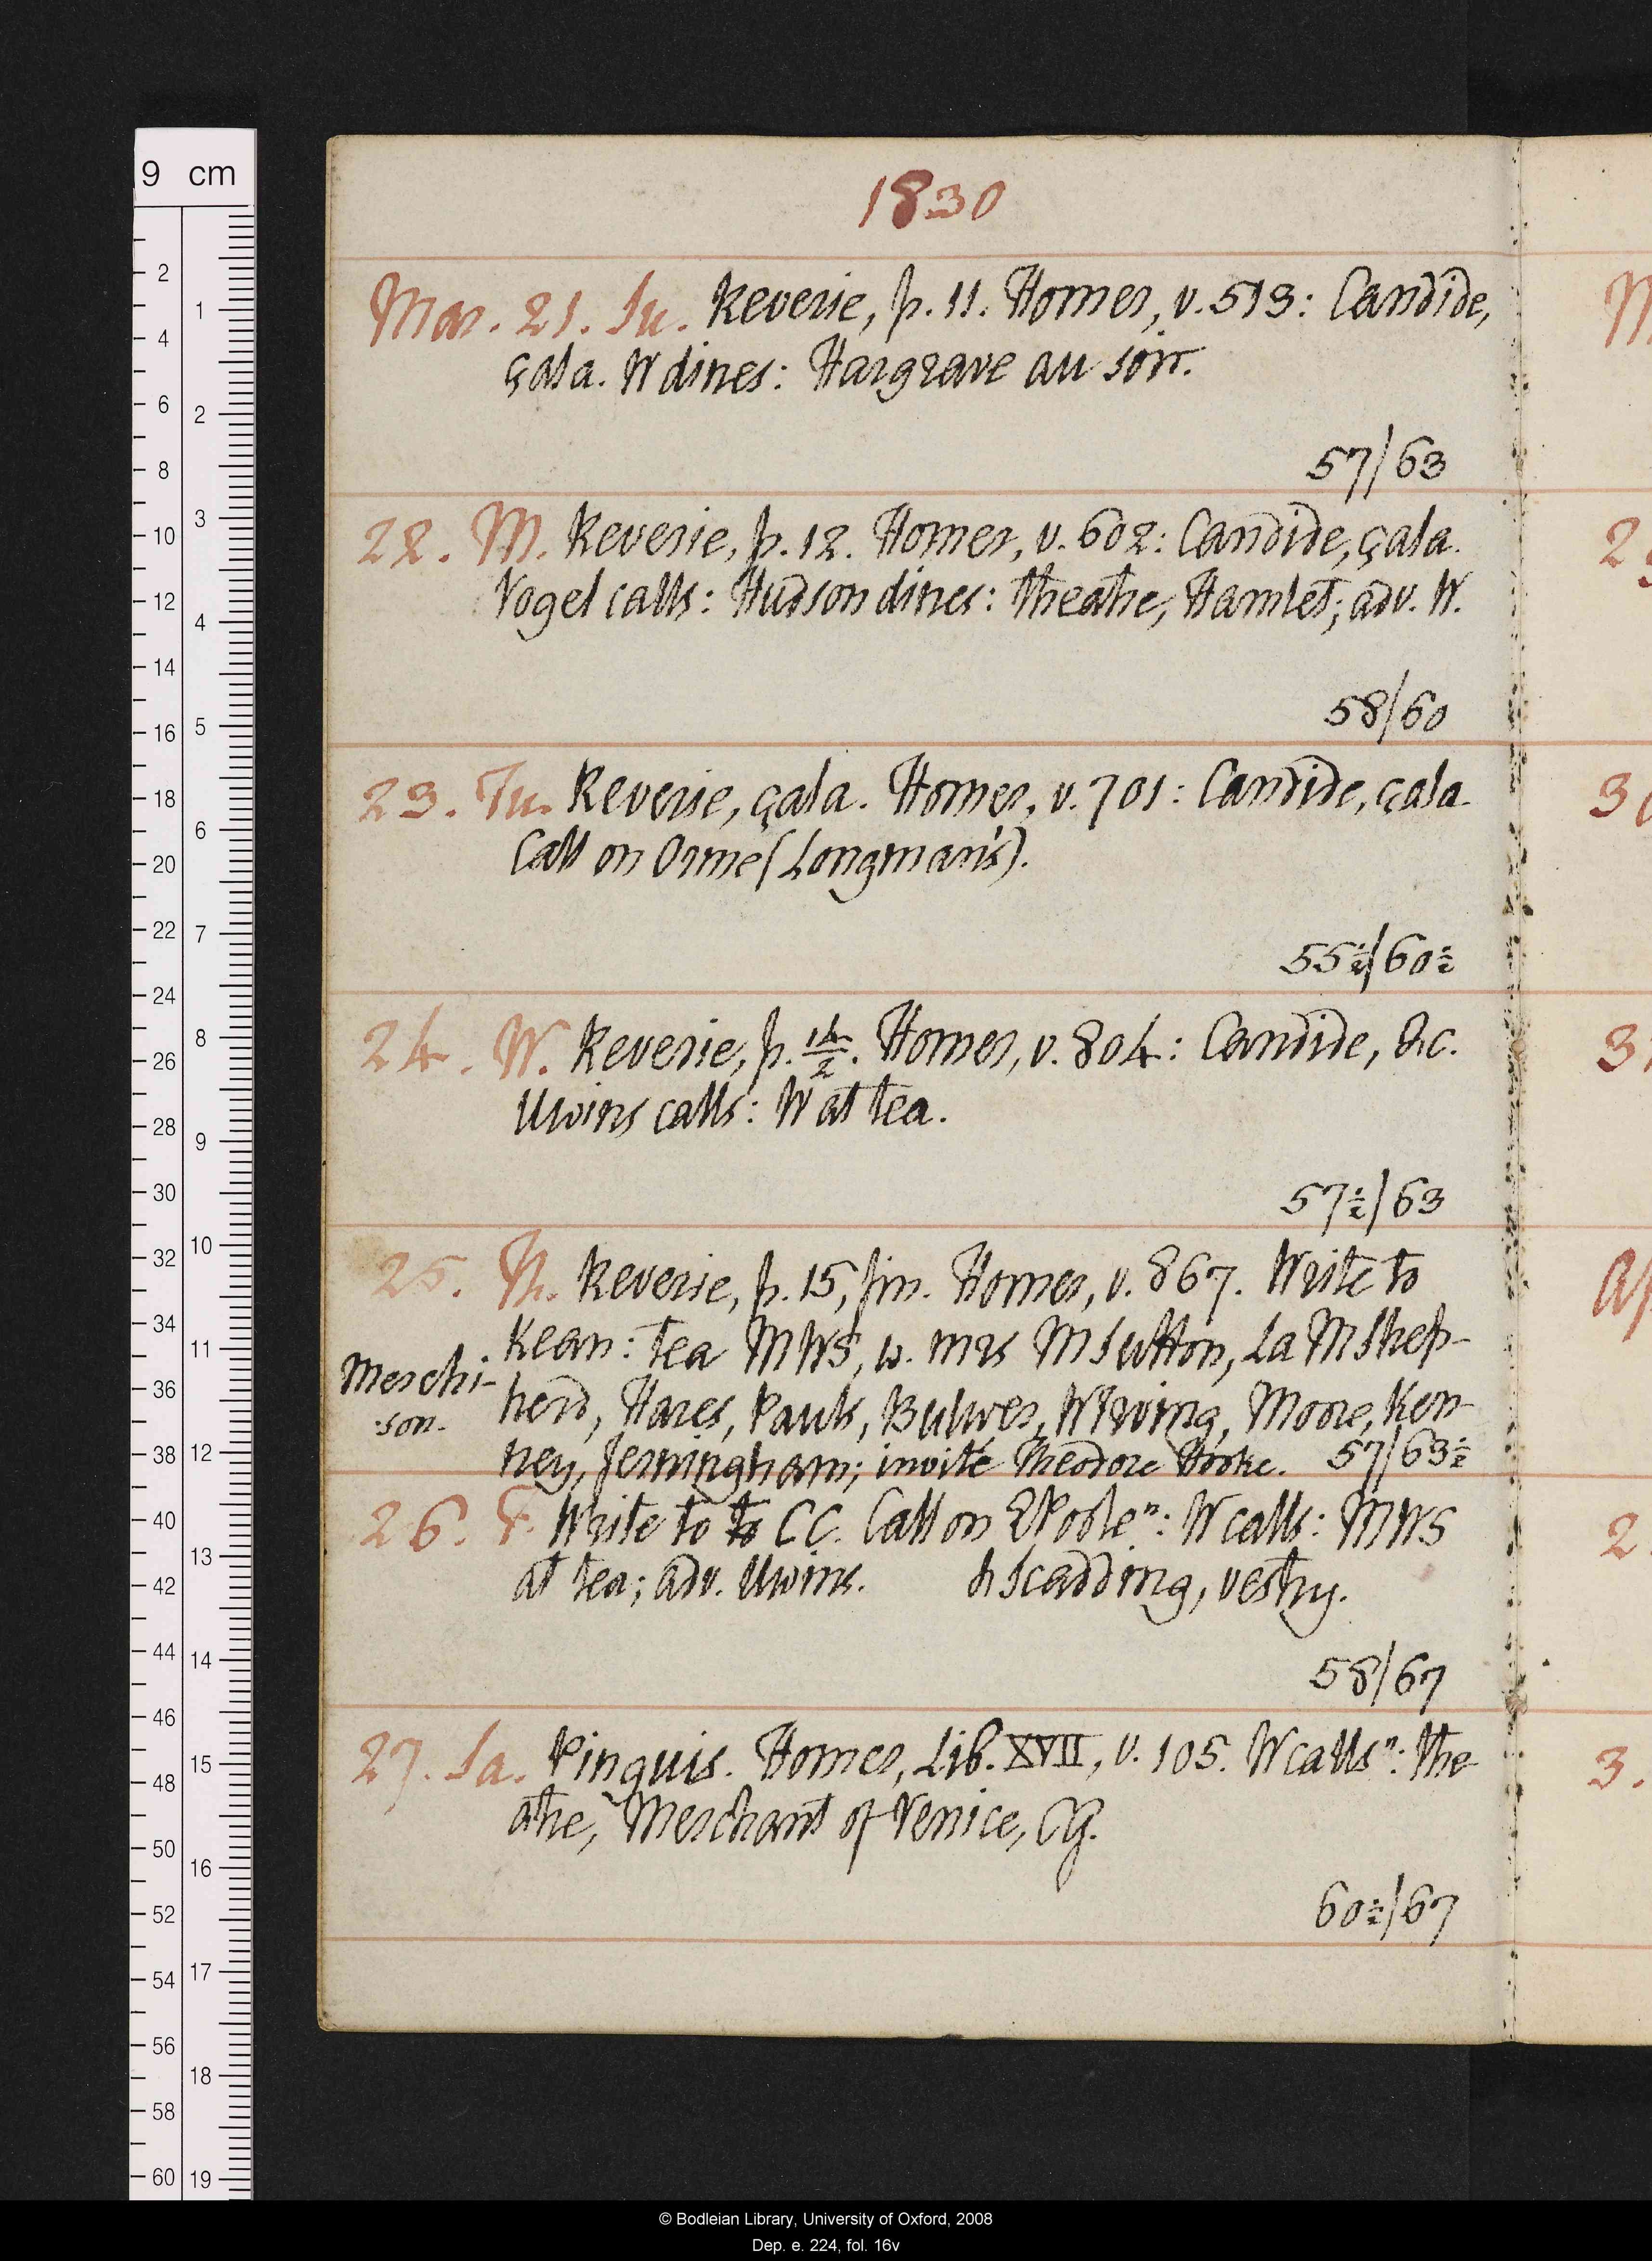 9 cm
1830
Mar. 21. Su. Reverie, p. 11. Homer, v. 513: Candide,
çala. W dines: Hargrave au soir.
57/63
22. M. Reverie, p. 12. Homer, v. 602: Candide, çala.
Vogel calls: Hudson dines: theatre, Hamlet; adv. W.
58/60
23. Tu. Reverie, çala. Homer, v. 701: Candide, çala.
Call on Orme (Longman's).
55½/60½
24. W. Reverie, p. 14/2. Homer, v. 804: Candide, &c.
Uwins calls: W at tea.
57½/63
25. Th. Reverie, p. 15, fin. Homer, v. 867. Write to
Kean: tea MWS, w. mrs M Sutton, La M Shep-
Merchi-
son.
herd, Hares, Pauls, Bulwer, W Irving, Moore, Ken-
ney, Jerningham; invité Theodore Hooke. 57/63½
26. F. Write to to CC. Call on E Poolen: W calls: MWS
at tea; adv. Uwins. & Scadding, vestry.
58/67
27. Sa. Pinguis. Homer, Lib. XVII, v. 105. W callsn: the-
atre, Merchant of Venice, CG.
60½/67
© Bodleian Library, University of Oxford, 2008
Dep. e. 224, fol. 16v